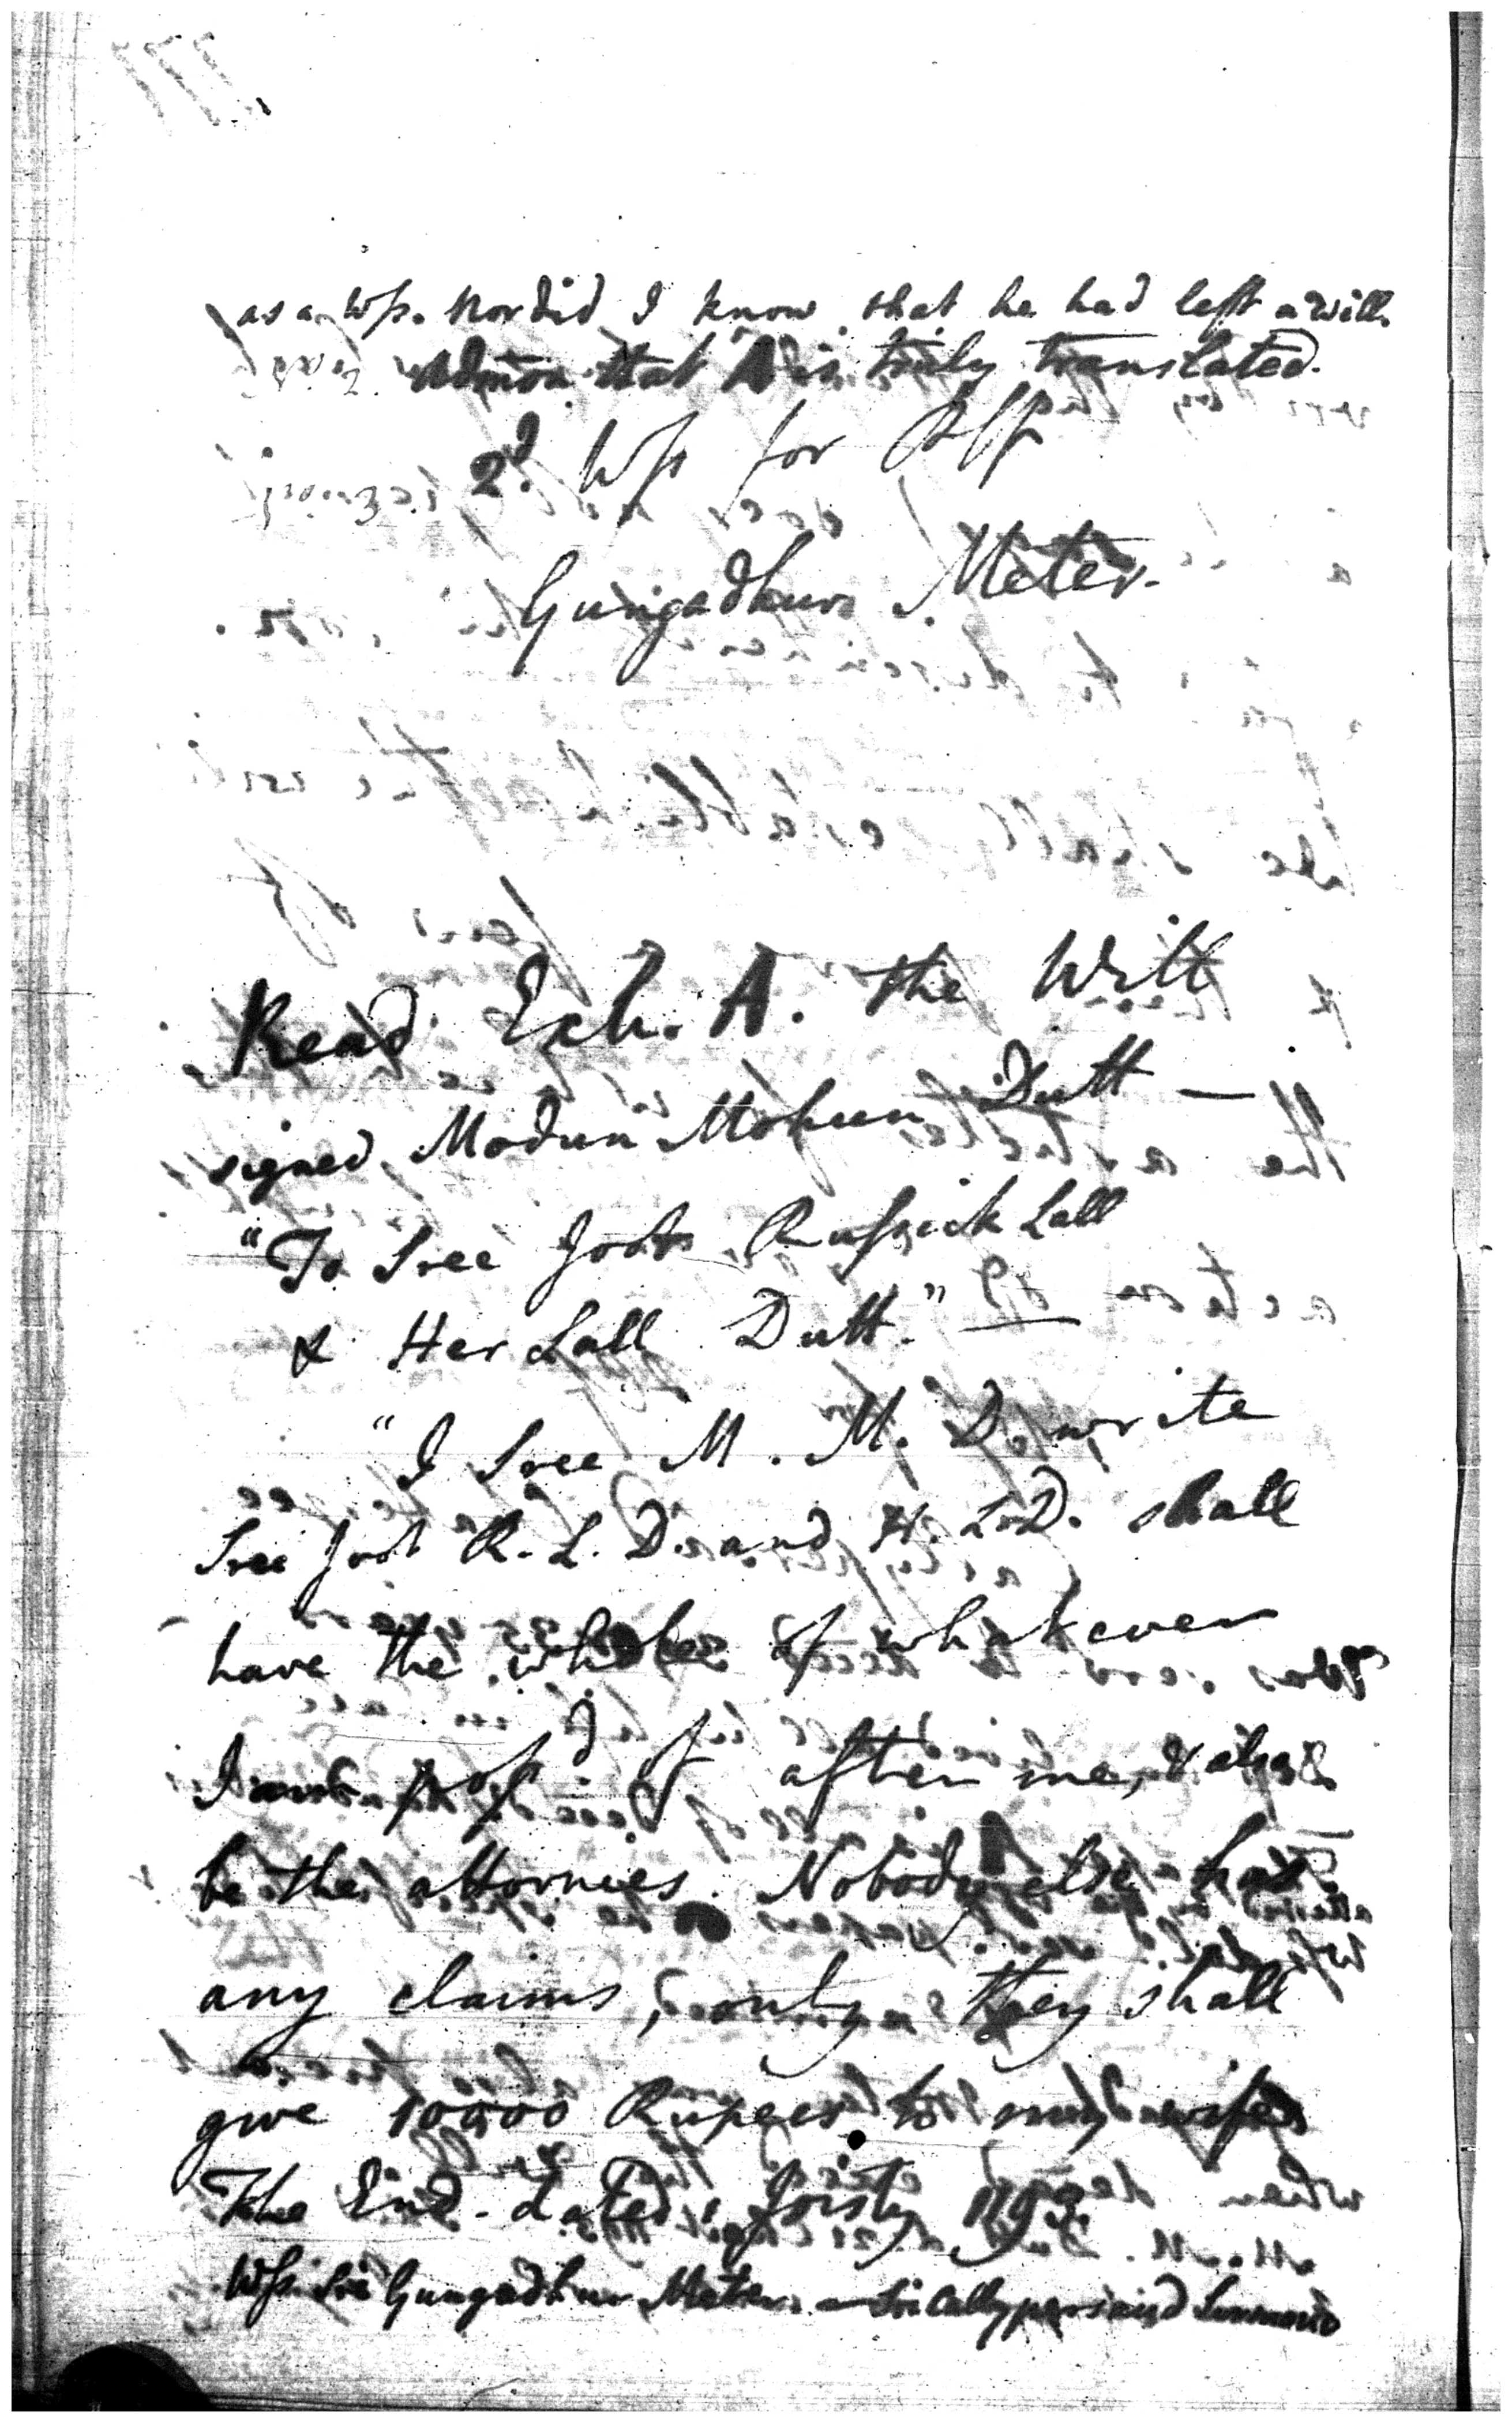 as a Wss. Nor did I know that he had left a will.
Admon that A is truly translated.
2d. Wss for Plff
Gungadhur Meter.
Read Exh. A. the Will
signed Modun Mohun Dutt —
"To Sree Joot Russick Lall
& Her Lall Dutt." —
"I Sree M. M. D. write
Sree Joot R. L. D. and H. L. D. shall
have the whole of whatever
I am poss'd of after me, & also
be the attornies. Nobody else has
any claims, only they shall
give 10000 Rupees to my wife
The End. Dated 1 Joisty 1193.
Wss. Sree Gungadhur Meter